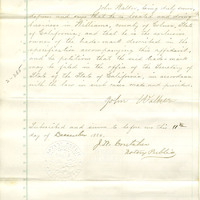 John Walker, being duly sworn
deposes and says that he is located and doing
business in Williams, county of Colusa, State
of California, and that he is the
of the trade-mark described in the
specification accompanying this affidavit,
and he petitions that the said trade-mark
may be filed in the office of the Secretary
of State of the State of California, in accordance
with the law in such case made and provided.
John Walker
Subscribed and sworn to before me this 11th
day of December 188
J. W.
Notary Public